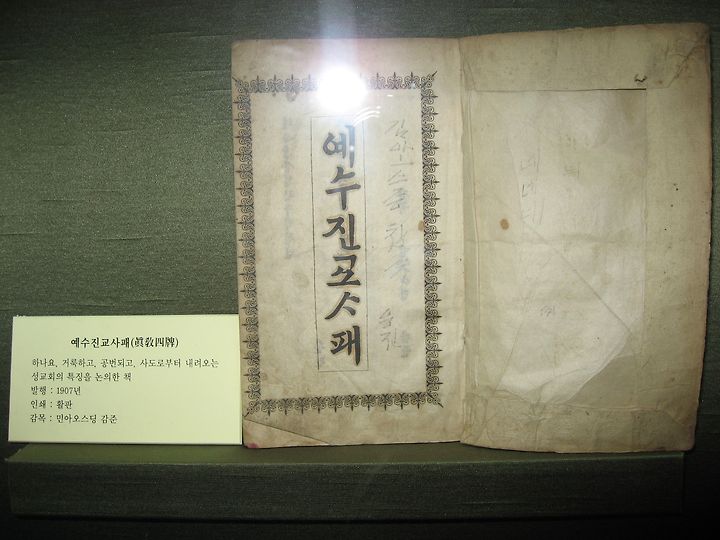 예수진교사패(眞敎四牌)
하나요, 거룩하고, 공번되고, 사도로부터 내려오는
성교회의 특징을 논의한 책
발행 : 1907년
인쇄 : 활판
감목 : 민아오스딩 감준
예수진교ᄉᆞ패